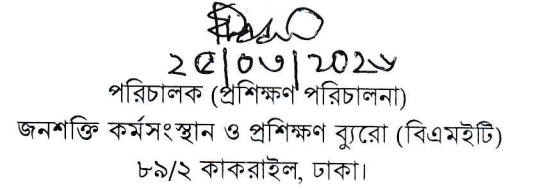 পরিচালক (প্রশিক্ষণ পরিচালনা)
জনশক্তি কর্মসংস্থান ও প্রশিক্ষণ ব্যুরো (বিএমইটি)
৮৯/২ কাকরাইল, ঢাকা।